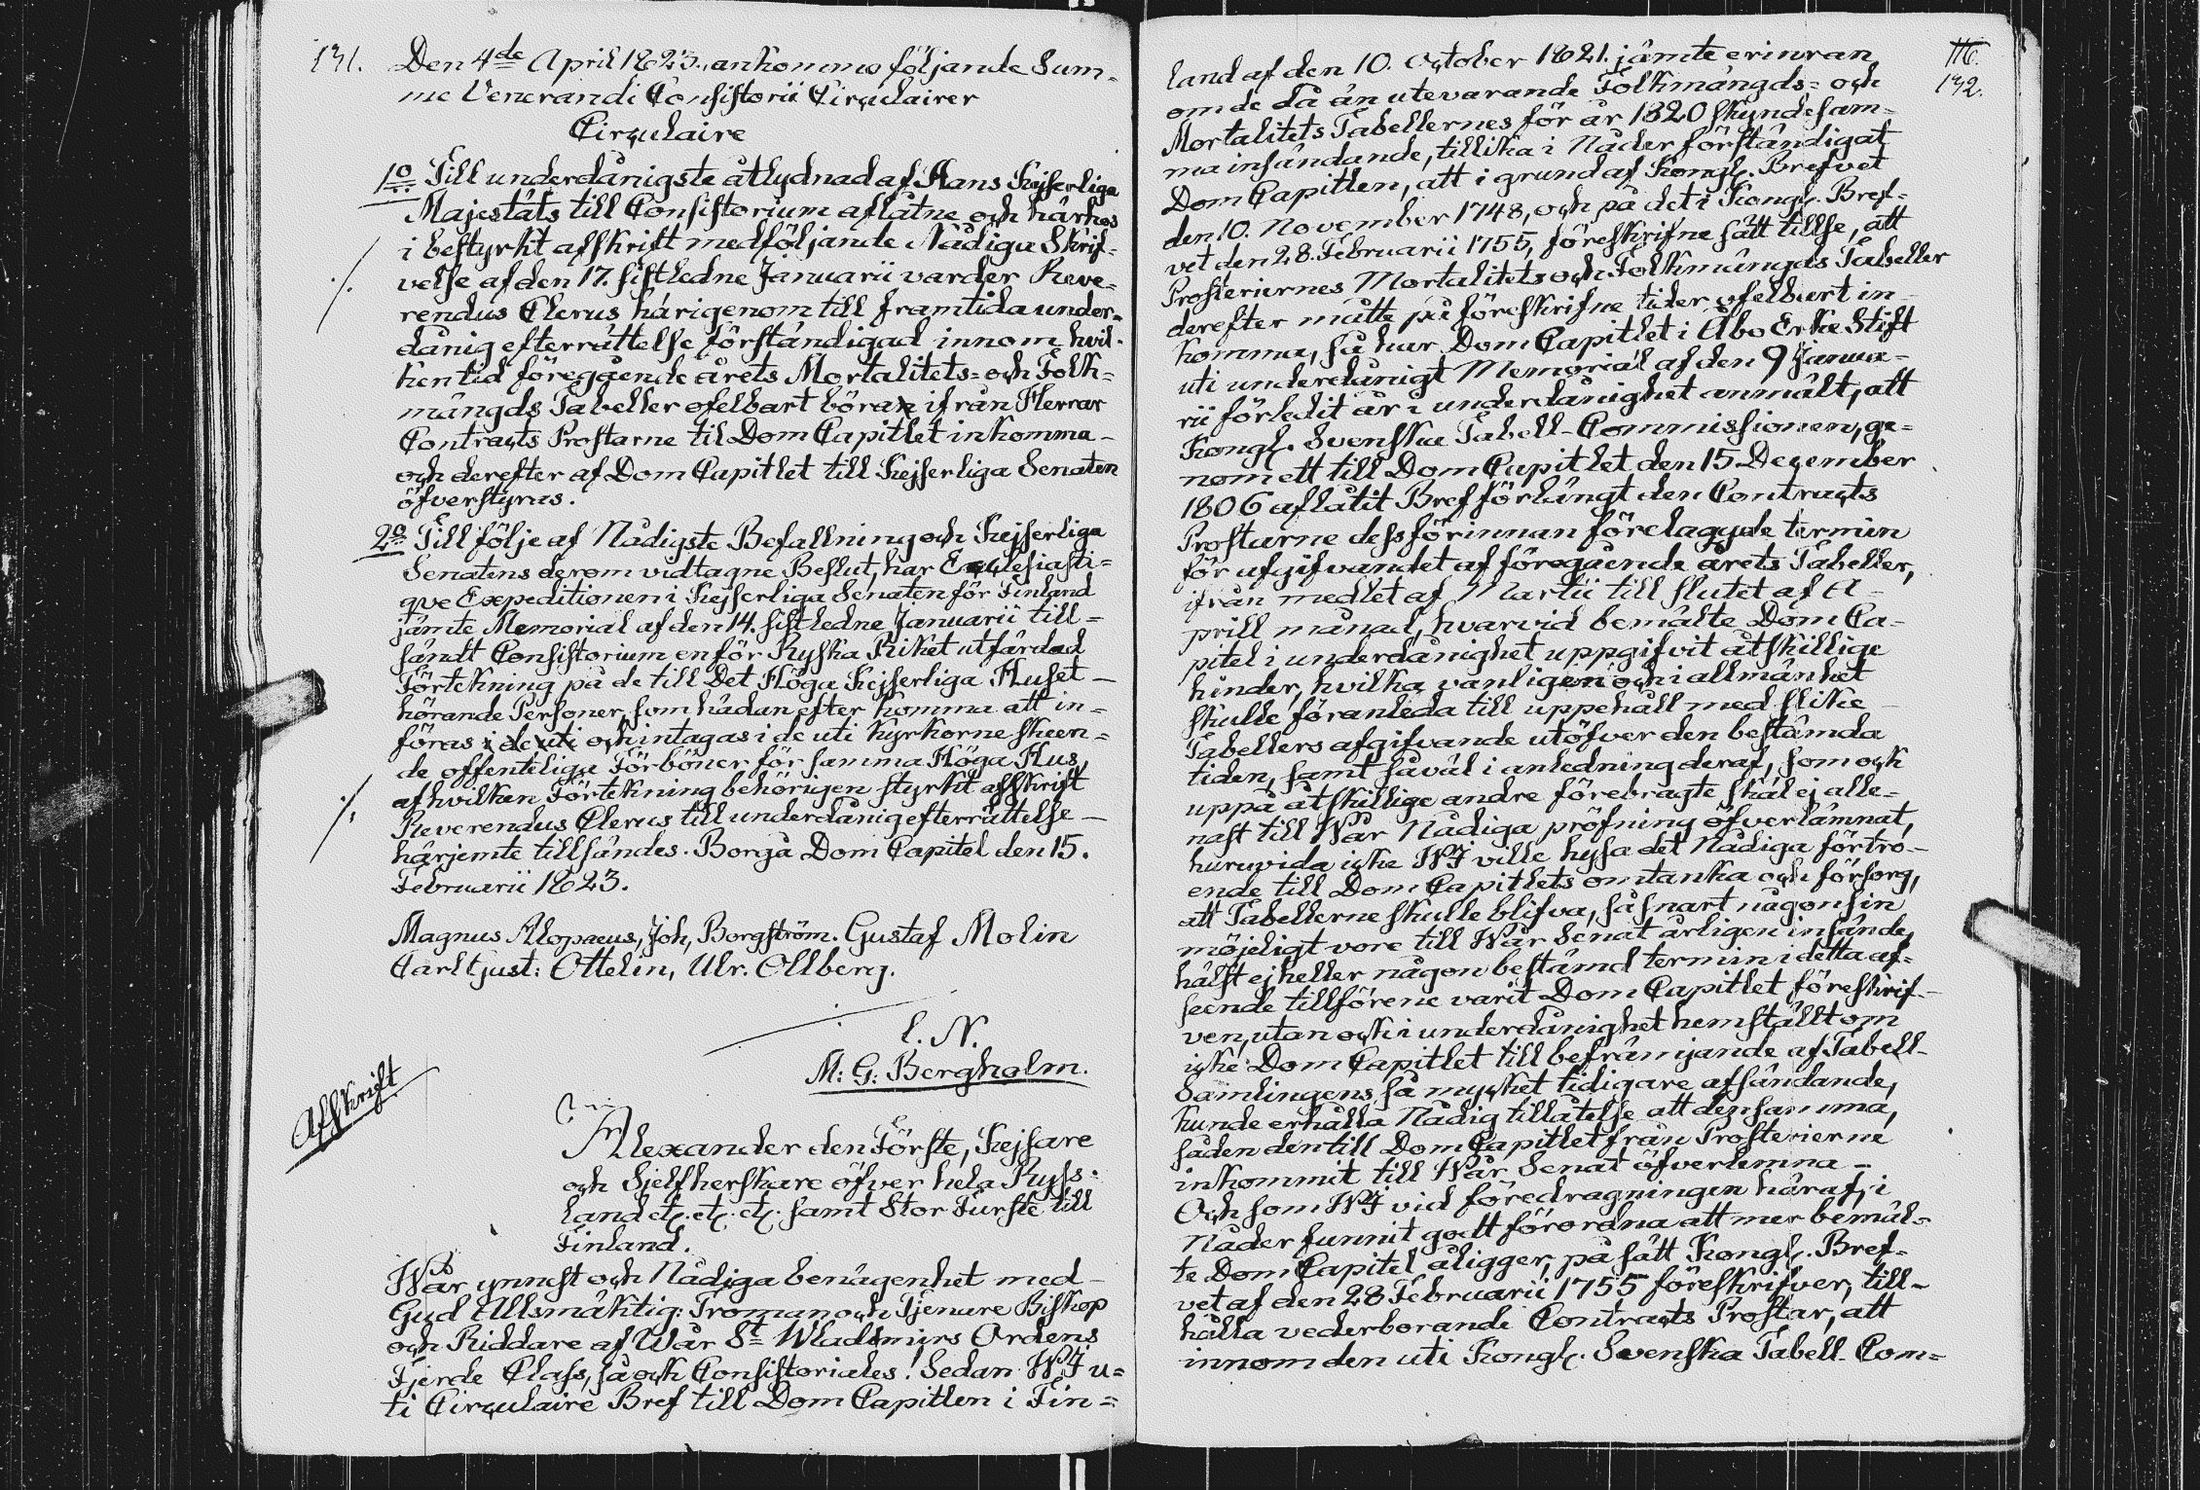 191.
Den 4de April 1823. ankommo följande Sum-
me Venerandi Consistorii Circulairer
Circulaire
1o Till underdånigste åtlydnad af Hans Kejserliga
Majestäts till Consistorium aflåtne och härhos
i bestyrkt afskrift medföljande Nådiga Skrif-
velse af den 17. sistledne Januarii varder Reve-
rendus Clerus härigenom till framtida under-
dånig efterrättelse förständigad innom hvil-
ken tid föregående årets Mortalitets- och Folk-
mängds Tabeller ofelbart böra ifrån Herrar
Contracts Prostarne til Dom Capitlet inkomma
och derefter af Dom Capitlet till Kejserliga Senaten
öfverstyras.
2o Till följe af Nådigste Befallning och Kejserliga
Senatens derom vidtagne Beslut, har Ecclesiasti-
que Expeditionen i Kejserliga Senaten för Finland
jämte Memorial af den 14. sistledne Januarii till-
sändt Consistorium en för Ryska Riket utfärdad
Förtekning på de till Det Höga Kejserliga Huset
hörande Personer, som hädanefter komma att in-
föras i de uti och intagas i de uti kyrkorne skeen-
de offenteliga Förböner för samma Höga Hus,
af hvilken Förtekning behörigen styrkt afskrift
Reverendus Clerus till underdånig efterrättelse
härjemte tillsändes. Borgå Dom Capitel den 15.
Februarii 1823.
Magnus Alopaeus, Joh, Borgström. Gustaf Molin
Carl Gust: Ottelin, Ulr. Ollberg.
E. N.
M: G: Bergholm.
Afskrift
Alexander den Förste, Kejsare
och Sjelfherskare öfver hela Ryss-
land etc. etc. etc. samt Stor Furste till
Finland.
Wår ynnest och Nådiga benägenhet med
Gud Allsmäktig: Troman och Tjenare Biskop
och Riddare af Wår St Wladimirs Ordens
Fjerde Class, så ock Consistoriales! Sedan WJ u-
ti Circulaire Bref till Dom Capitlen i Fin-
192.
land af den 10. October 1821. jämte erinran
om de då än utevarande Folkmängds- och
Mortalitets Tabellernes för år 1820 skyndesam-
ma insändande, tillika i Nåder förständigat
Dom Capitlen, att i grund af Kongl. Brefvet
den 10. November 1748, och på det i Kongl. Bref-
vet den 28. Februarii 1755, föreskrifne sätt tillse, att
Prosteriernes Mortalitets och Folkmängds Tabeller
derefter måtte på föreskrifne tider ofelbart in-
komma, så har Dom Capitlet i Åbo Erke Stift
uti underdånigt Memorial af den 9 Janua-
rii förledit år i underdånighet anmält, att
Kongl. Svenska Tabell-Commissionen, ge-
nom ett till Dom Capitlet den 15 December
1806 aflåtit Bref förlängt den Contracts
Prostarne dessförinnan förelagde termin
för afgifvandet af föregående årets Tabeller,
ifrån medlet af Martii till slutet af A-
prill månad, hvarvid bemälte Dom Ca-
pitel i underdånighet uppgifvit åtskillige
hinder, hvilka vanligen och i allmänhet
skulle föranleda till uppehåll med slike
Tabellers afgifvande utöfver den bestämda
tiden, samt såväl i anledning deraf, som ock
uppå åtskillige andre förebragte skäl ej alle-
nast till Wår Nådiga pröfning öfverlämnat,
huruvida icke WJ ville hysa det Nådiga förtro-
ende till Dom Capitlets omtanka och försorg,
att Tabellerne skulle blifva, så snart någonsin
möjeligt vore till Wår Senat årligen insände,
hälst ej heller någon bestämd termin i detta af-
seende tillförene varit Dom Capitlet föreskrif-
ven, utan ock i underdånighet hemstält om
icke Dom Capitlet till befrämjande af Tabell-
Samlingens så mycket tidigare afsändande,
kunde erhålla Nådig tillåtelse att densamma,
såden den till Dom Capitlet från Prosterierne
inkommit till Wår Senat öfverlemna
Och som WJ vid föredragningen häraf, i
Nåder funnit godt förordna att mer bemäl-
te Dom Capitel åligger, på sätt Kongl. Bref-
vet af den 28 Februarii 1755 föreskrifver, till-
hålla vederborande Contracts Prostar, att
innom den uti Kongl. Svenska Tabell-Com-